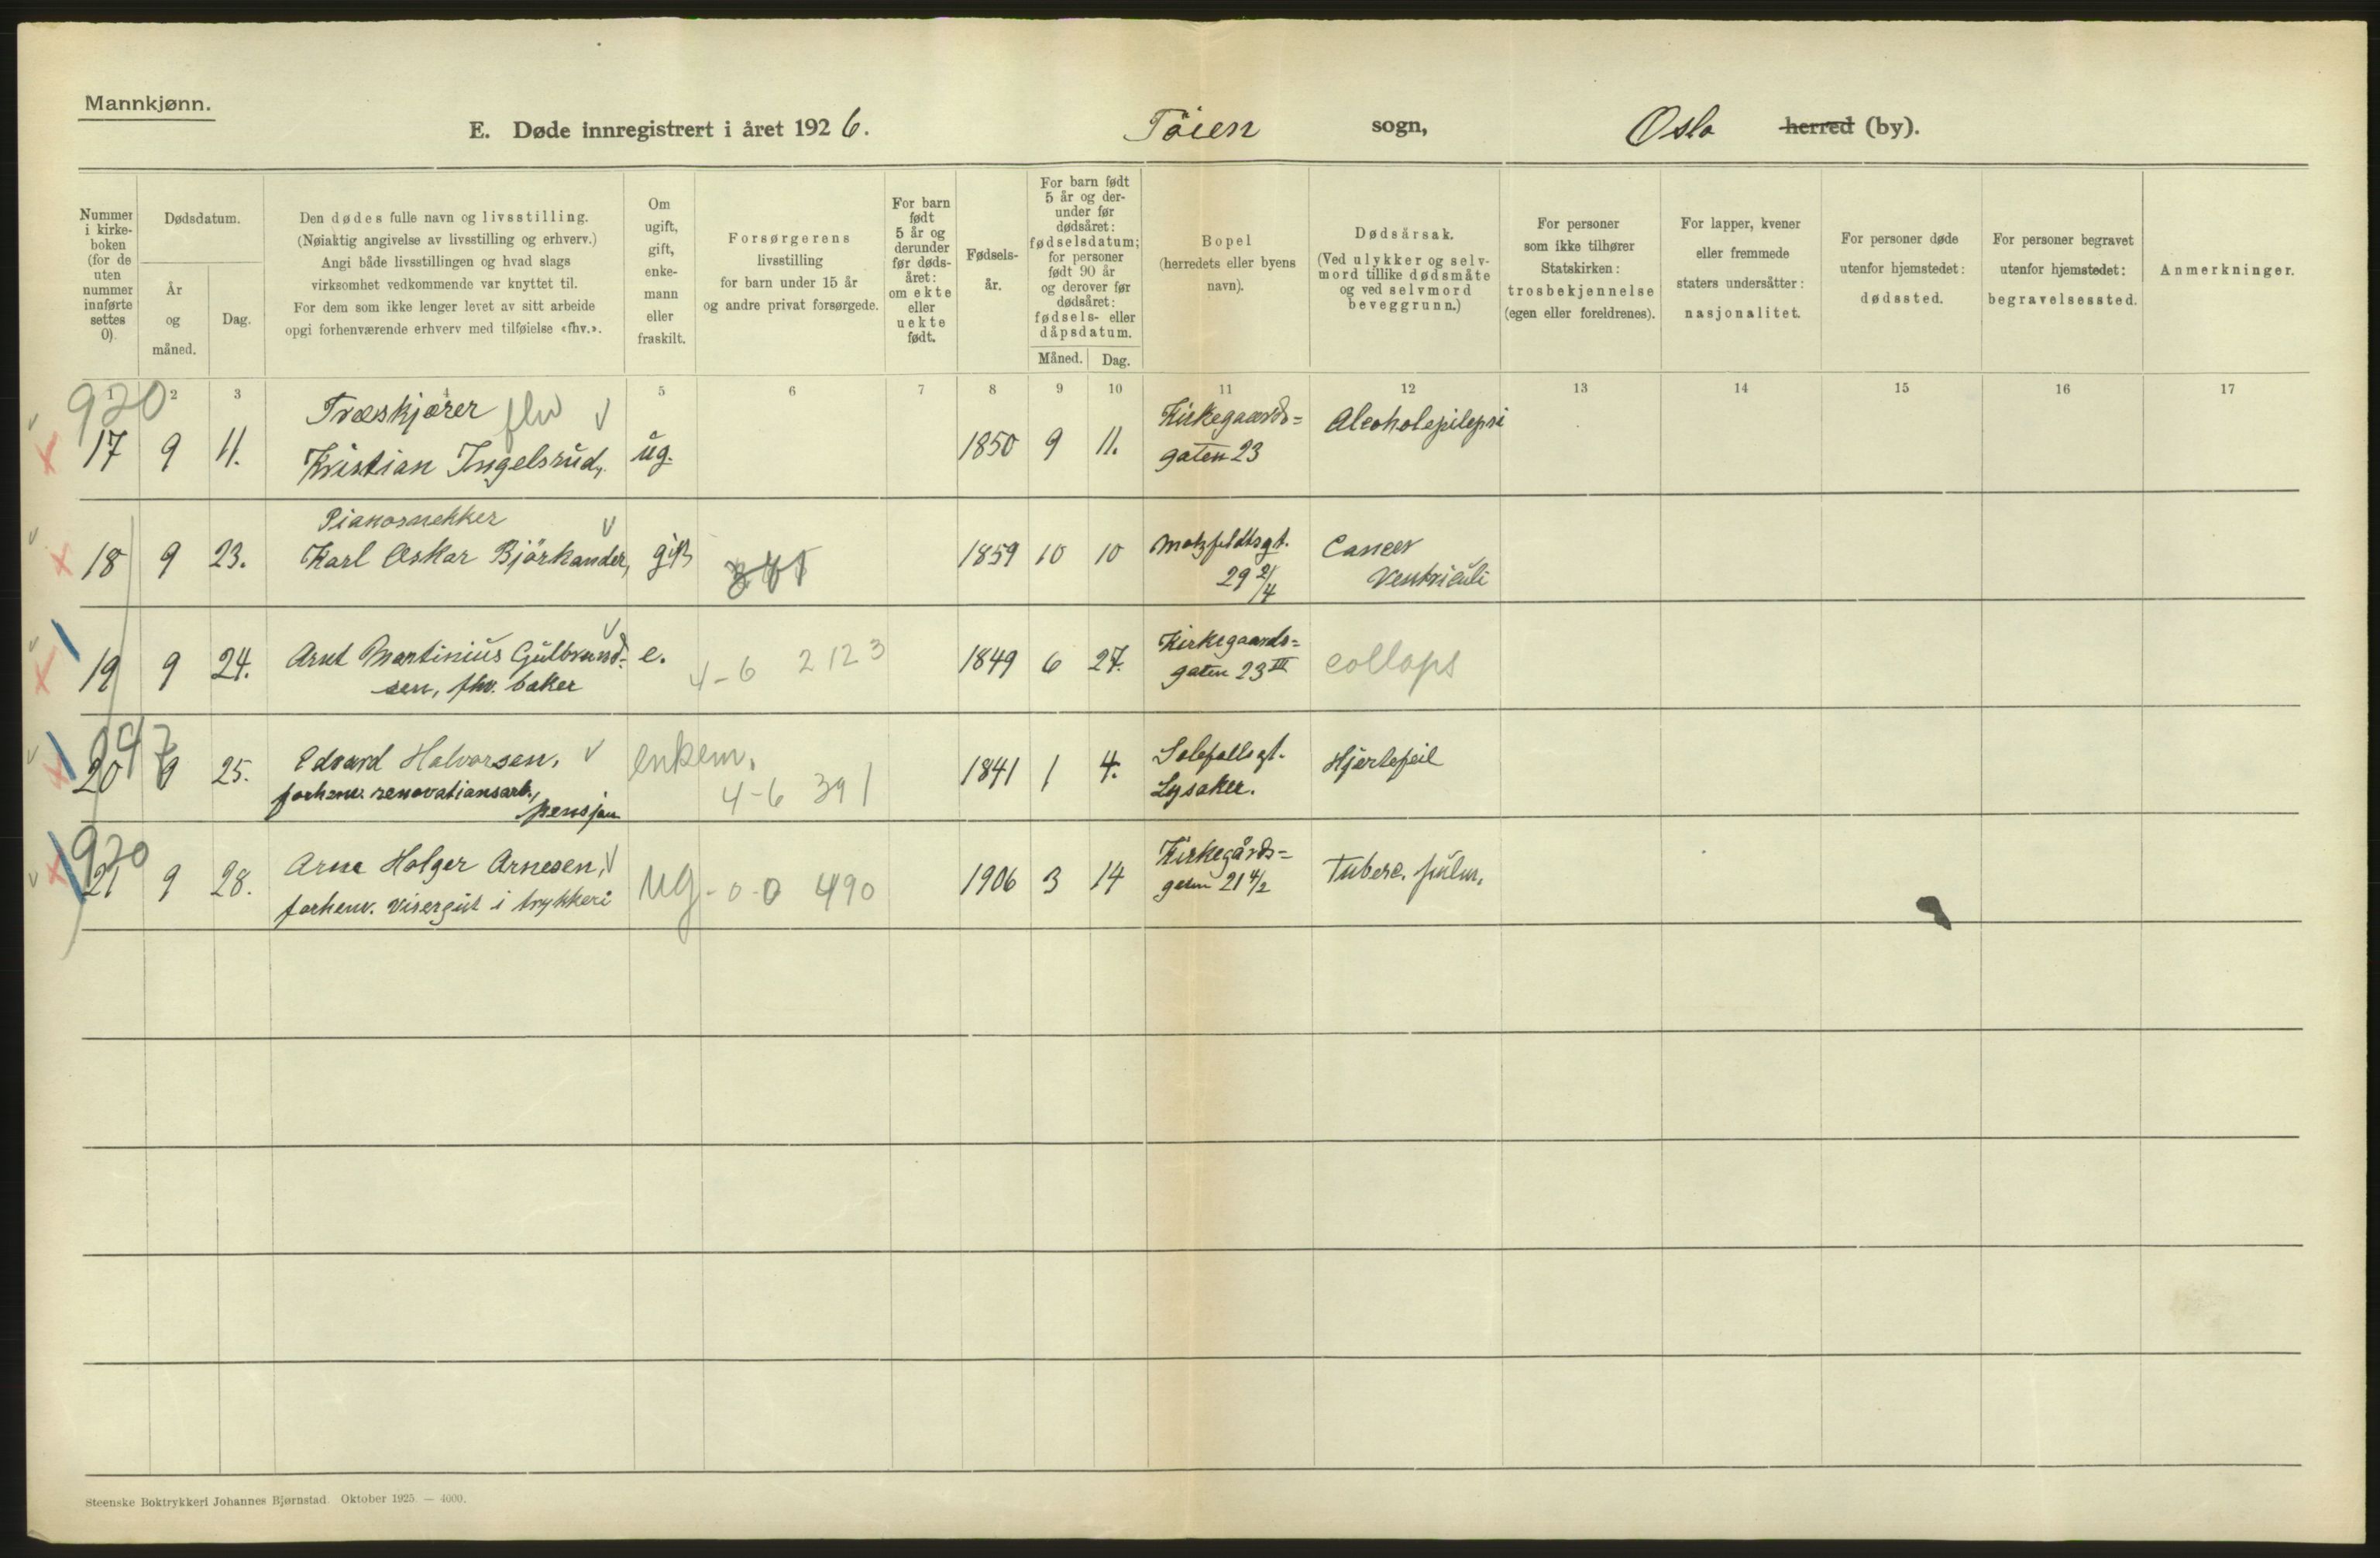 Mannkjønn.
E. Døde innregistrert i året 1926. Töien sogn, Oslo herred (by).
Nummer i kirke- boken (for de uten nummer innførte settes 0).
Dødsdatum.
År og måned.
Dag.
Den dødes fulle navn og livsstilling.
(Nøiaktig angivelse av livsstilling og erhverv.)
Angi både livsstillingen og hvad slags
virksomhet vedkommende var knyttet til.
For dem som ikke lenger levet av sitt arbeide
opgi forhenværende erhverv med tilføielse «fhv.».
Om ugift, gift, enke- mann eller fraskilt.
Forsørgerens
livsstilling
for barn under 15 år
og andre privat forsørgede.
For barn født 5 år og derunder før døds- året: om ekte eller uekte født.
Fødsels- år.
For barn født 5 år og der- under før dødsåret: fødselsdatum; for personer født 90 år og derover før dødsåret: fødsels- eller dåpsdatum.
Måned. Dag.
Bopel
(herredets eller byens
navn).
Dødsårsak.
(Ved ulykker og selv-
mord tillike dødsmåte
og ved selvmord
beveggrunn.)
For personer
som ikke tilhører
Statskirken:
trosbekjennelse
(egen eller foreldrenes).
For lapper, kvener
eller fremmede
staters undersåtter:
nasjonalitet.
For personer døde
utenfor hjemstedet:
dødssted.
For personer begravet
utenfor hjemstedet:
begravelsessted.
Anmerkninger.
1 2 3 4 5 6 7 8 9 10 11 12 13 14 15 16 17
920
Træskjærer fhv Kirkegaards= Alcoholepilepsi
17 9 11. Kristian Ingelsrud, ug. 1850 9 11. gaten 23
Pianosnekker
18 9 23. Karl Oskar Björkander, gift 1859 10 10 Motzfeldtsgt. Cancer
29 2/4 Ventriculi
19 9 24. Arnt Martinius Gulbrand- e. 4-6 2123 1849 6 27. Kirkegaards= collaps
sen, fhv. baker gaten 23 III
20 9 25. Edvard Halvorsen, enkem. 1841 1 4. Hjertefeil
forhenv. renovationsarb., 4-6 391 Lysaker.
pensjon
920
21 9 28. Arne Holger Arnesen, ug - 0-0 490 1906 3 14 Kirkegårds= Tuberc. pulm.
forhenv. visergut i trykkeri gaten 21 4/2
Steenske Boktrykkeri Johannes Bjørnstad. Oktober 1925. — 4000.